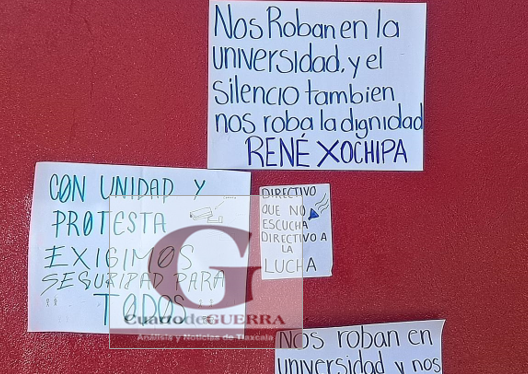 Nos Roban en la
universidad, y el
silencio tambien
nos roba la dignidad
RENÉ XOCHIPA
CON UNIDAD Y
PROTESTA
EXIGIMOS
SEGURIDAD PARA
TODOS
DIRECTIVO
QUE NO
ESCUCHA
DIRECTIVO A
LA
LUCHA
G
CuartodeGUERRA
Análisis y Noticias de Tlaxcala
Nos roban en
universidad y nos